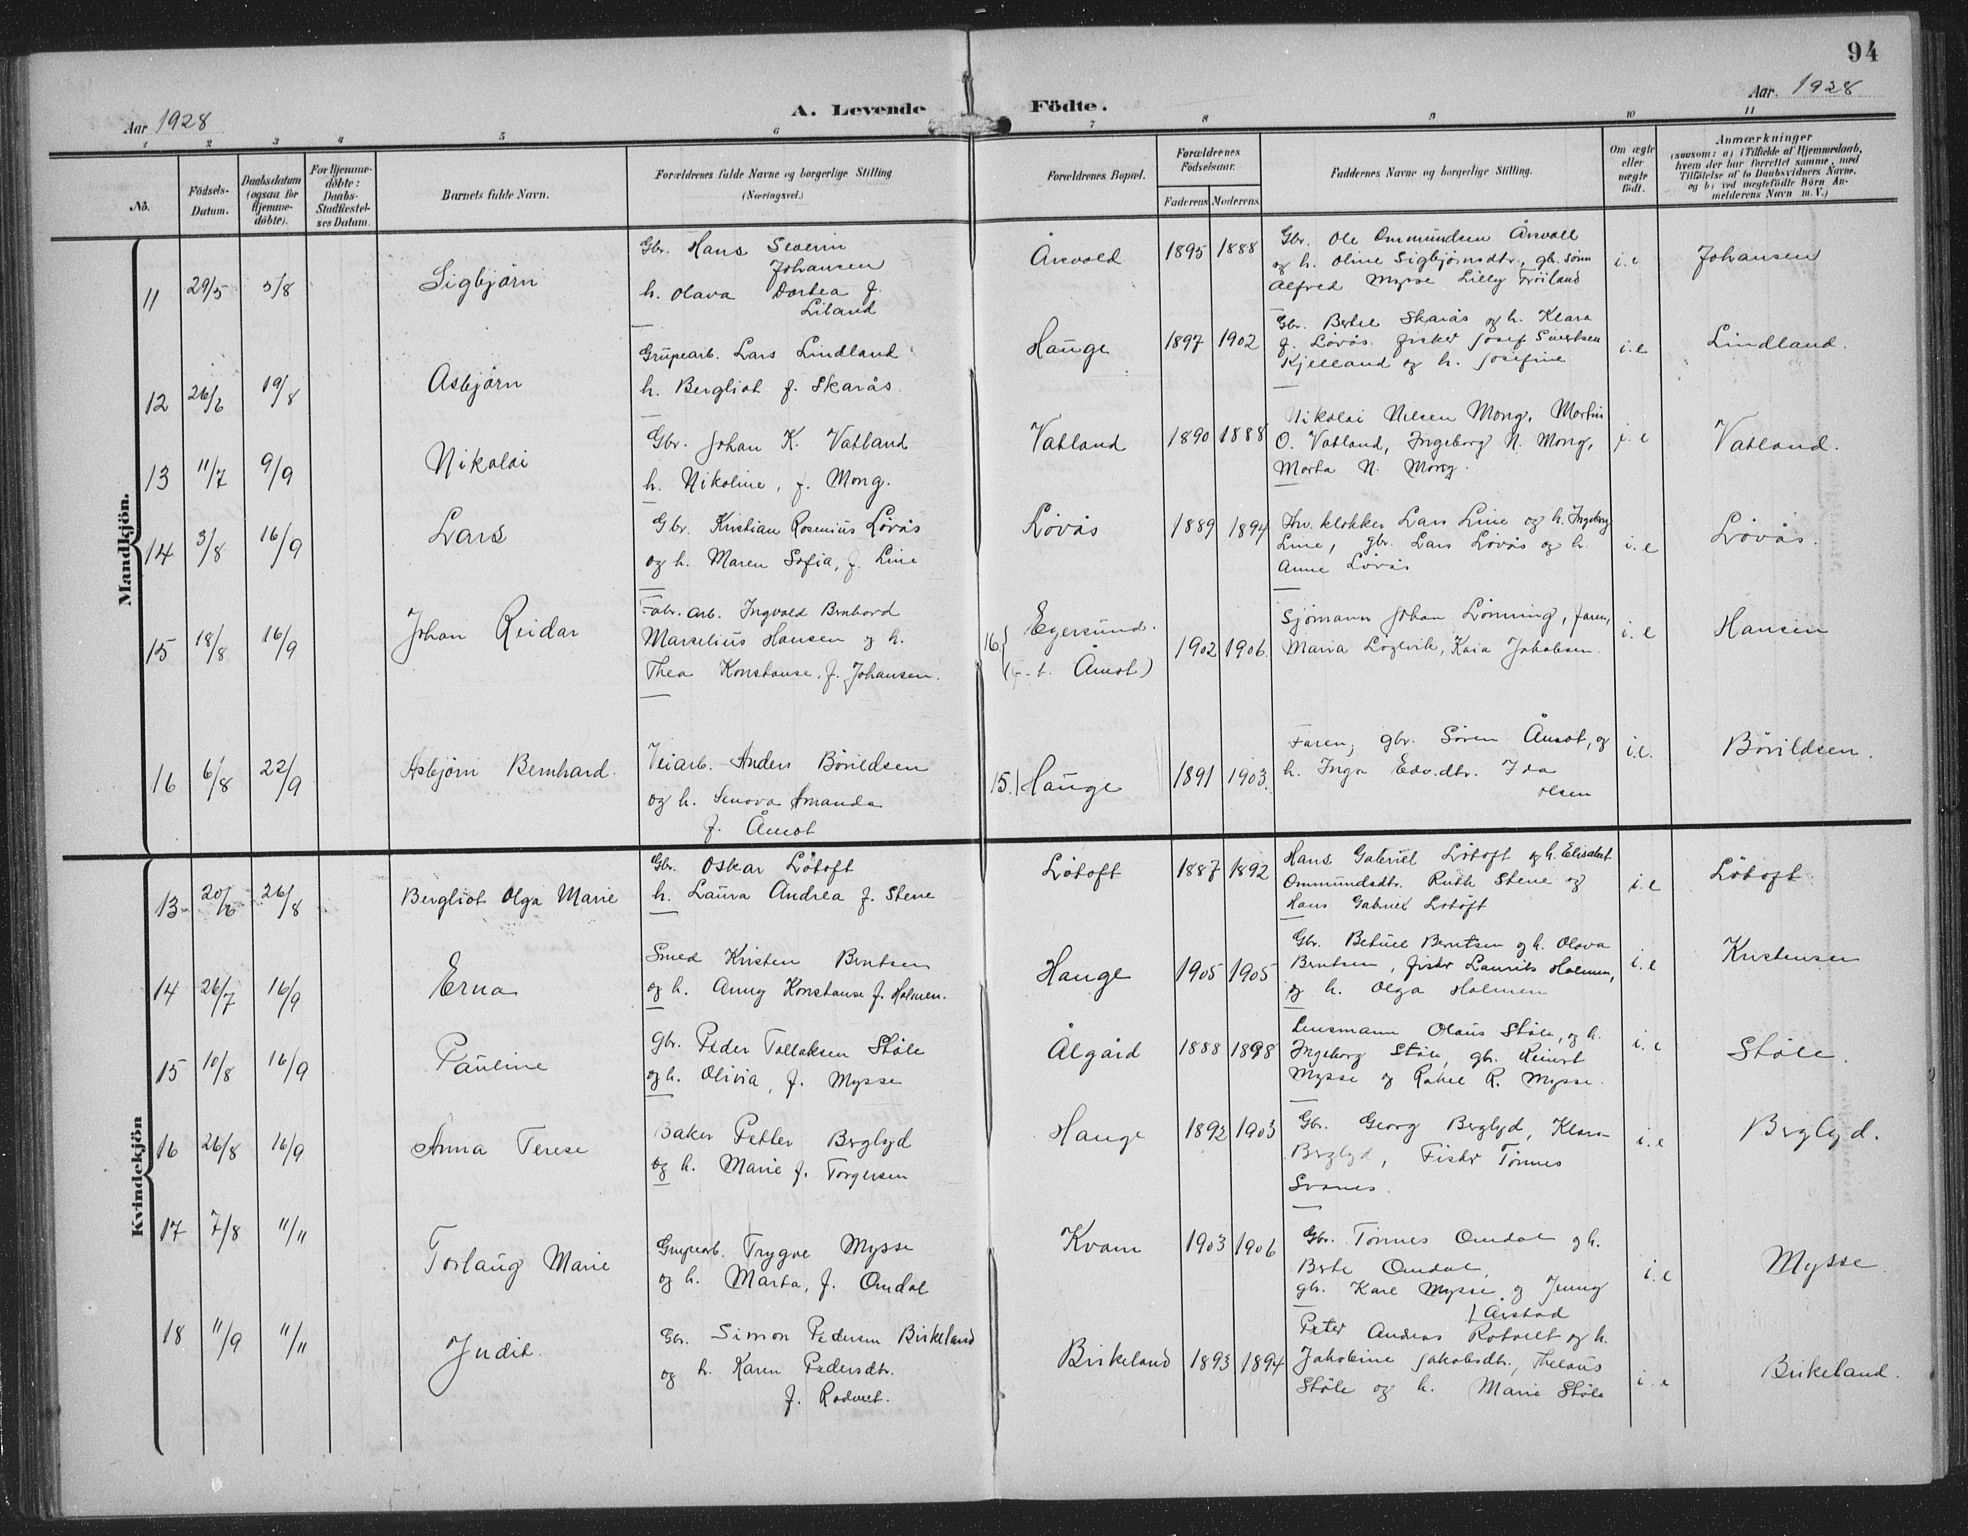 94
Aar 1928
A. Levende Födte.
Aar 1928
1 2 3 4 5 6 7 8 9 10 11
No.
Födsels-Datum.
Daabsdatum (ogsaa for Hjemme-döbte).
For Hjemme-döbte: Daabs-Stadfæstel-ses Datum.
Barnets fulde Navn.
Forældrenes fulde Navne og borgerlige Stilling
(Næringsvei.)
Forældrenes Bopæl.
Forældrenes Födselsaar.
Faderens Moderens
Faddernes Navne og borgerlige Stilling.
Om ægte eller uægte födt.
Anmærkninger
(saasom: a) i Tilfælde af Hjemmedaab, hvem der har forrettet samme, med Tilföielse af to Daabsvidners Navne. og b) ved uægtefödte Börn Anmelderens Navn m. V.)
Mandkjön.
11 29/5 5/8 Sigbjörn
Gbr. Hans Severin
Johansen
h. Olava Dortea f.
Liland
Årsvold 1895 1888
Gbr. Ole Ommundsen Årsvoll
og h. Oline Sigbjørnsdtr., gb. sönn
Alfred Mysse Lilly Fröiland
i.e Johansen
12 26/6 19/8 Asbjörn
Grubearb. Lars Lindland
h. Bergliot f. Skarås.
Hauge 1897 1902
Gbr. Bertel Skarås og h. Klara
f. Lövås. fisker Josef Sivertsen
Kjelland og h. Josefine
i.e Lindland.
13 11/7 9/9 Nikolai
Gbr. Johan K. Vatland
h. Nikoline, f. Mong.
Vatland 1890 1888
Nikolai Nilsen Mong, Martin
O. Vatland, Ingeborg N. Mong,
Marta N. Mong.
i.e Vatland.
14 3/8 16/9 Lars
Gbr. Kristian Rosenius Lövås
og h. Maren Sofia, f. Line
Lövås 1889 1894
Fhv. klokker Lars Line og h. Ingeborg
Line, gbr. Lars Lövås og h.
Anne Lövås
i.e Lövås.
15 18/8 16/9 Johan Reidar
Fabr. arb. Ingvald Bernhard
Marselius Hansen og h.
Thea Konstanse, f. Johansen.
16) Egersund.
(f. t. Åmot) 1902 1906
Sjömann Johan Lönning, faren,
Maria Lögevik, Kaia Jakobsen.
i.e Hansen
16 6/8 22/9 Asbjörn Bernhard.
Veiarb. Anders Börildsen
og h. Senova Amanda
f. Åmot
15.) Hauge 1891 1903.
Faren, gbr. Sören Åmot, og
h. Inga Edv.dtr. Ida
Olsen
i.e. Börildsen.
Kvindekjön
13 20/6 26/8 Bergliot Olga Marie
Gbr. Oskar Lötoft
h. Laura Andrea f. Stene
Lötoft 1887 1892
Hans Gabriel Lötoft og h. Elisabet
Ommundsdtr. Ruth Stene og
Hans Gabriel Lötoft
i.e Lötoft
14 26/7 16/9 Erna
Smed Kristen Berntsen
og h. Anny Konstanse f. Holmen.
Hauge 1905 1905
Gbr. Betuel Berntsen og h. Olava
Berntsen, fisker Laurits Holmen,
og h. Olga Holmen
i.e Kristensen
15 10/8 16/9 Pauline
gbr. Peder Tollaksen Stöle
og h. Olivia, f. Mysse
Ålgård 1888 1898
Lensmann Olaus Stöle, og h.
Ingeborg Stöle, gbr. Reinert
Mysse og Rakel R. Mysse.
i.e Stöle.
16 26/8 16/9 Anna Terese
Baker Petter Berglyd
og h. Marie f. Torgersen
Hauge 1892 1903
Gbr. Georg Berglyd, Klara
Berglyd, Fisker Tönnes
Svanes.
i.e Berglyd.
17 7/8 11/11 Torlaug Marie
Grubearb. Trygve Mysse
og h. Marta, f. Omdal
Kvam 1903 1906
Gbr. Tönnes Omdal og h.
Berte Omdal,
gbr. Karl Mysse og Jenny
Årstad
i.e Mysse.
18 11/9 11/11 Judit.
Gbr. Simon Pedersen Birkeland
og h. Karen Pedersdtr.
f. Rodvelt.
Birkeland 1893 1894
Peter Andreas Rotvelt og h.
Jakobine Jakobsdtr., Thelaus
Stöle og h. Marie Stöle
i.e Birkeland.